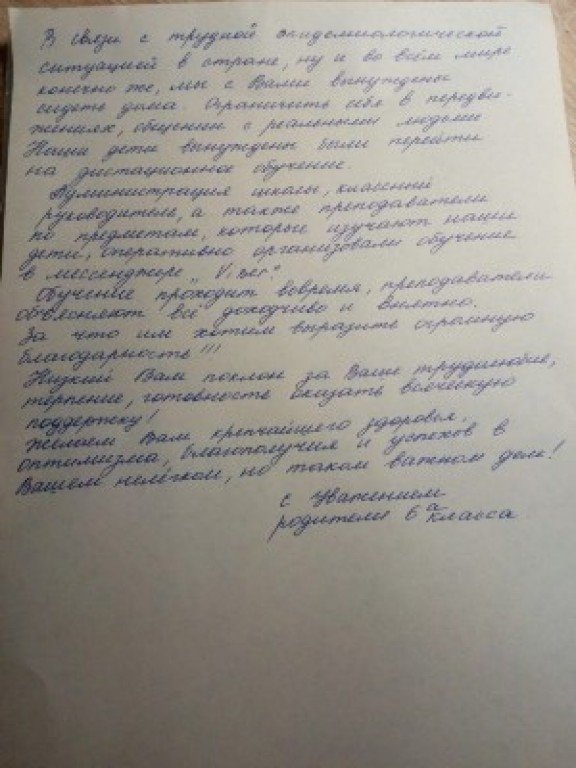 В связи с трудной эпидемиологической
ситуацией в стране, ну и во всём мире
конечно же, мы с Вами вынуждены
сидеть дома. Ограничить себя в передви-
жениях, общении с реальными людьми
Наши дети вынуждены были перейти
на дистационное обучение.
Администрация школы, классный
руководитель, а также преподаватели
по предметам, которые изучают наши
дети, оперативно организовали обучение
в мессенджере
Обучение проходит вовремя, преподаватели
объясняют всё доходчиво и внятно.
За что им хотим выразить огромную
благодарность!!!
Низкий Вам поклон за Ваше трудолюбие,
терпение, готовность оказать всяческую
поддержку!
Желаем Вам крепчайшего здоровья,
оптимизма, благополучия и успехов в
Вашем нелёгком, но таком важном деле!
с Уважением
родители 6 а класса